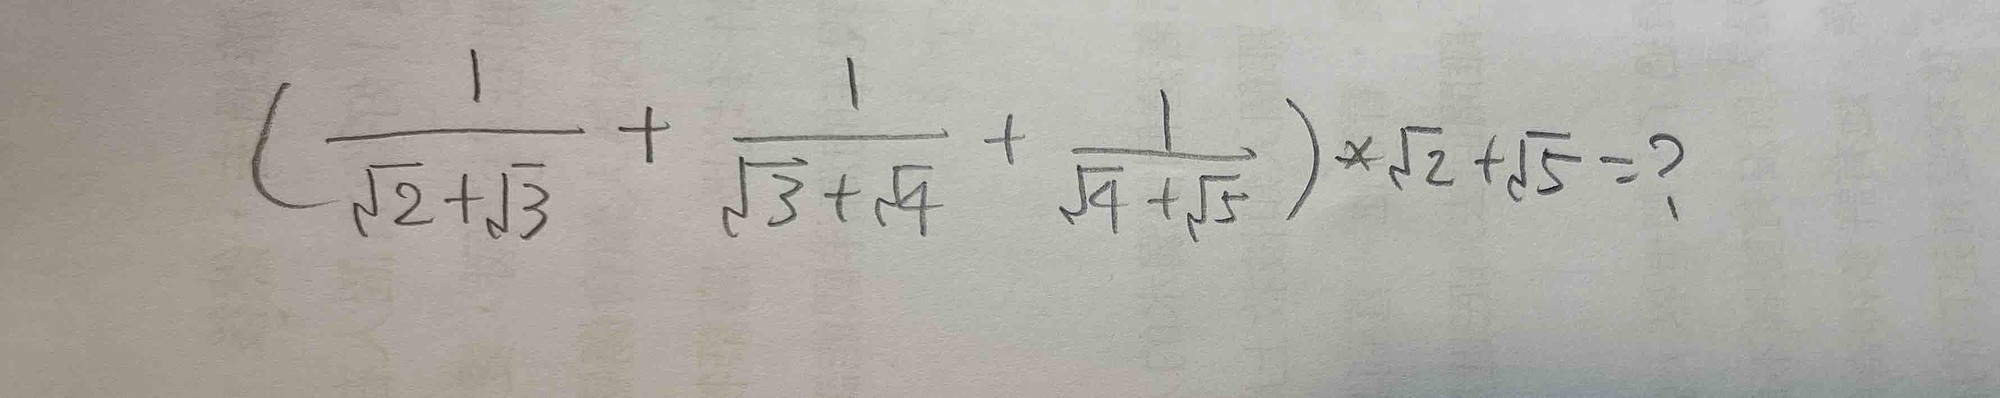 (1/(√2+√3) + 1/(√3+√4) + 1/(√4+√5)) * √2+√5=?